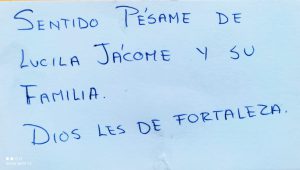 SENTIDO PÉSAME DE
LUCILA JÁCOME Y SU
FAMILIA.
DIOS LES DE FORTALEZA.